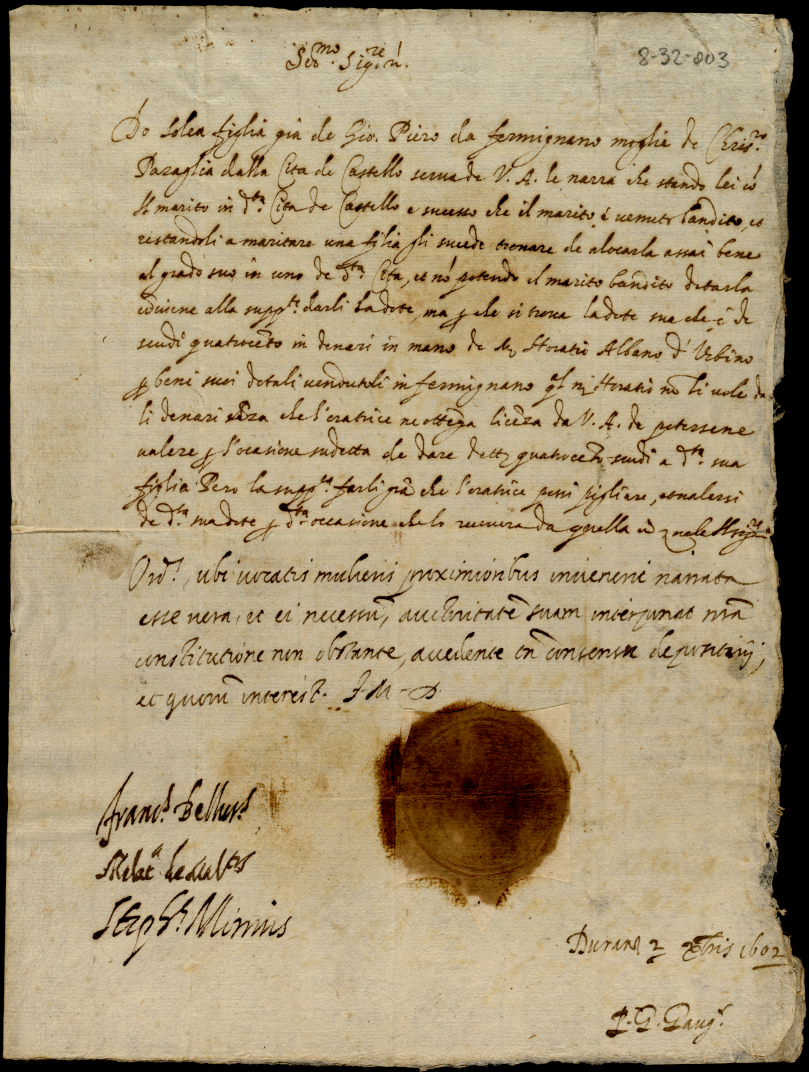 8-32-003
Ser.mo Sig.re n.
Do Solea figlia già de Gio. Piero da fermignano moglie de Chris.ro
Pazaglia dalla Cita de Castello serva de V. A. le narra che stando lei cō
Il marito in d.ta Cita de Castello e sucesso che il marito é venuto bandito, et
restandoli a maritare una filia gli sucede trovare de alocarla assai bene
al grado suo in uno de d.ta Cita, et nō potendo il marito bandito dotarla
cōviene alla supp.te darli la dote, ma p che si trova la dote sua che è de
scudi quatrocēto in denari in mano de M Horatio Albano d' Urbino
p beni suoi dotali vendutoli in fermignano ql M Horatio nō li vole da
li denari sēza che l'oratrice ne ottēga licēza da V. A. de potersene
valere p l'ocasione sudetta che dare detti quatrocēto scudi a d.ta sua
figlia Pero la supp.ca farli grā che l'oratrice possi pigliare, et valersi
de d.ta sua dote p d.ta occasione che lo recevera da quella
Ord.s, ubi vocatis mulieris proximioribus invenerit narrata
esse vera, et ei necessū, auctoritatē suam interponat nrā
constitutione non obstante, accedente tn̄ consensu depositarij,
et quorū interest. J. M. D.
Franc.s Bellus.s
Steph.s Mimus
Durant 2 xbris 1602